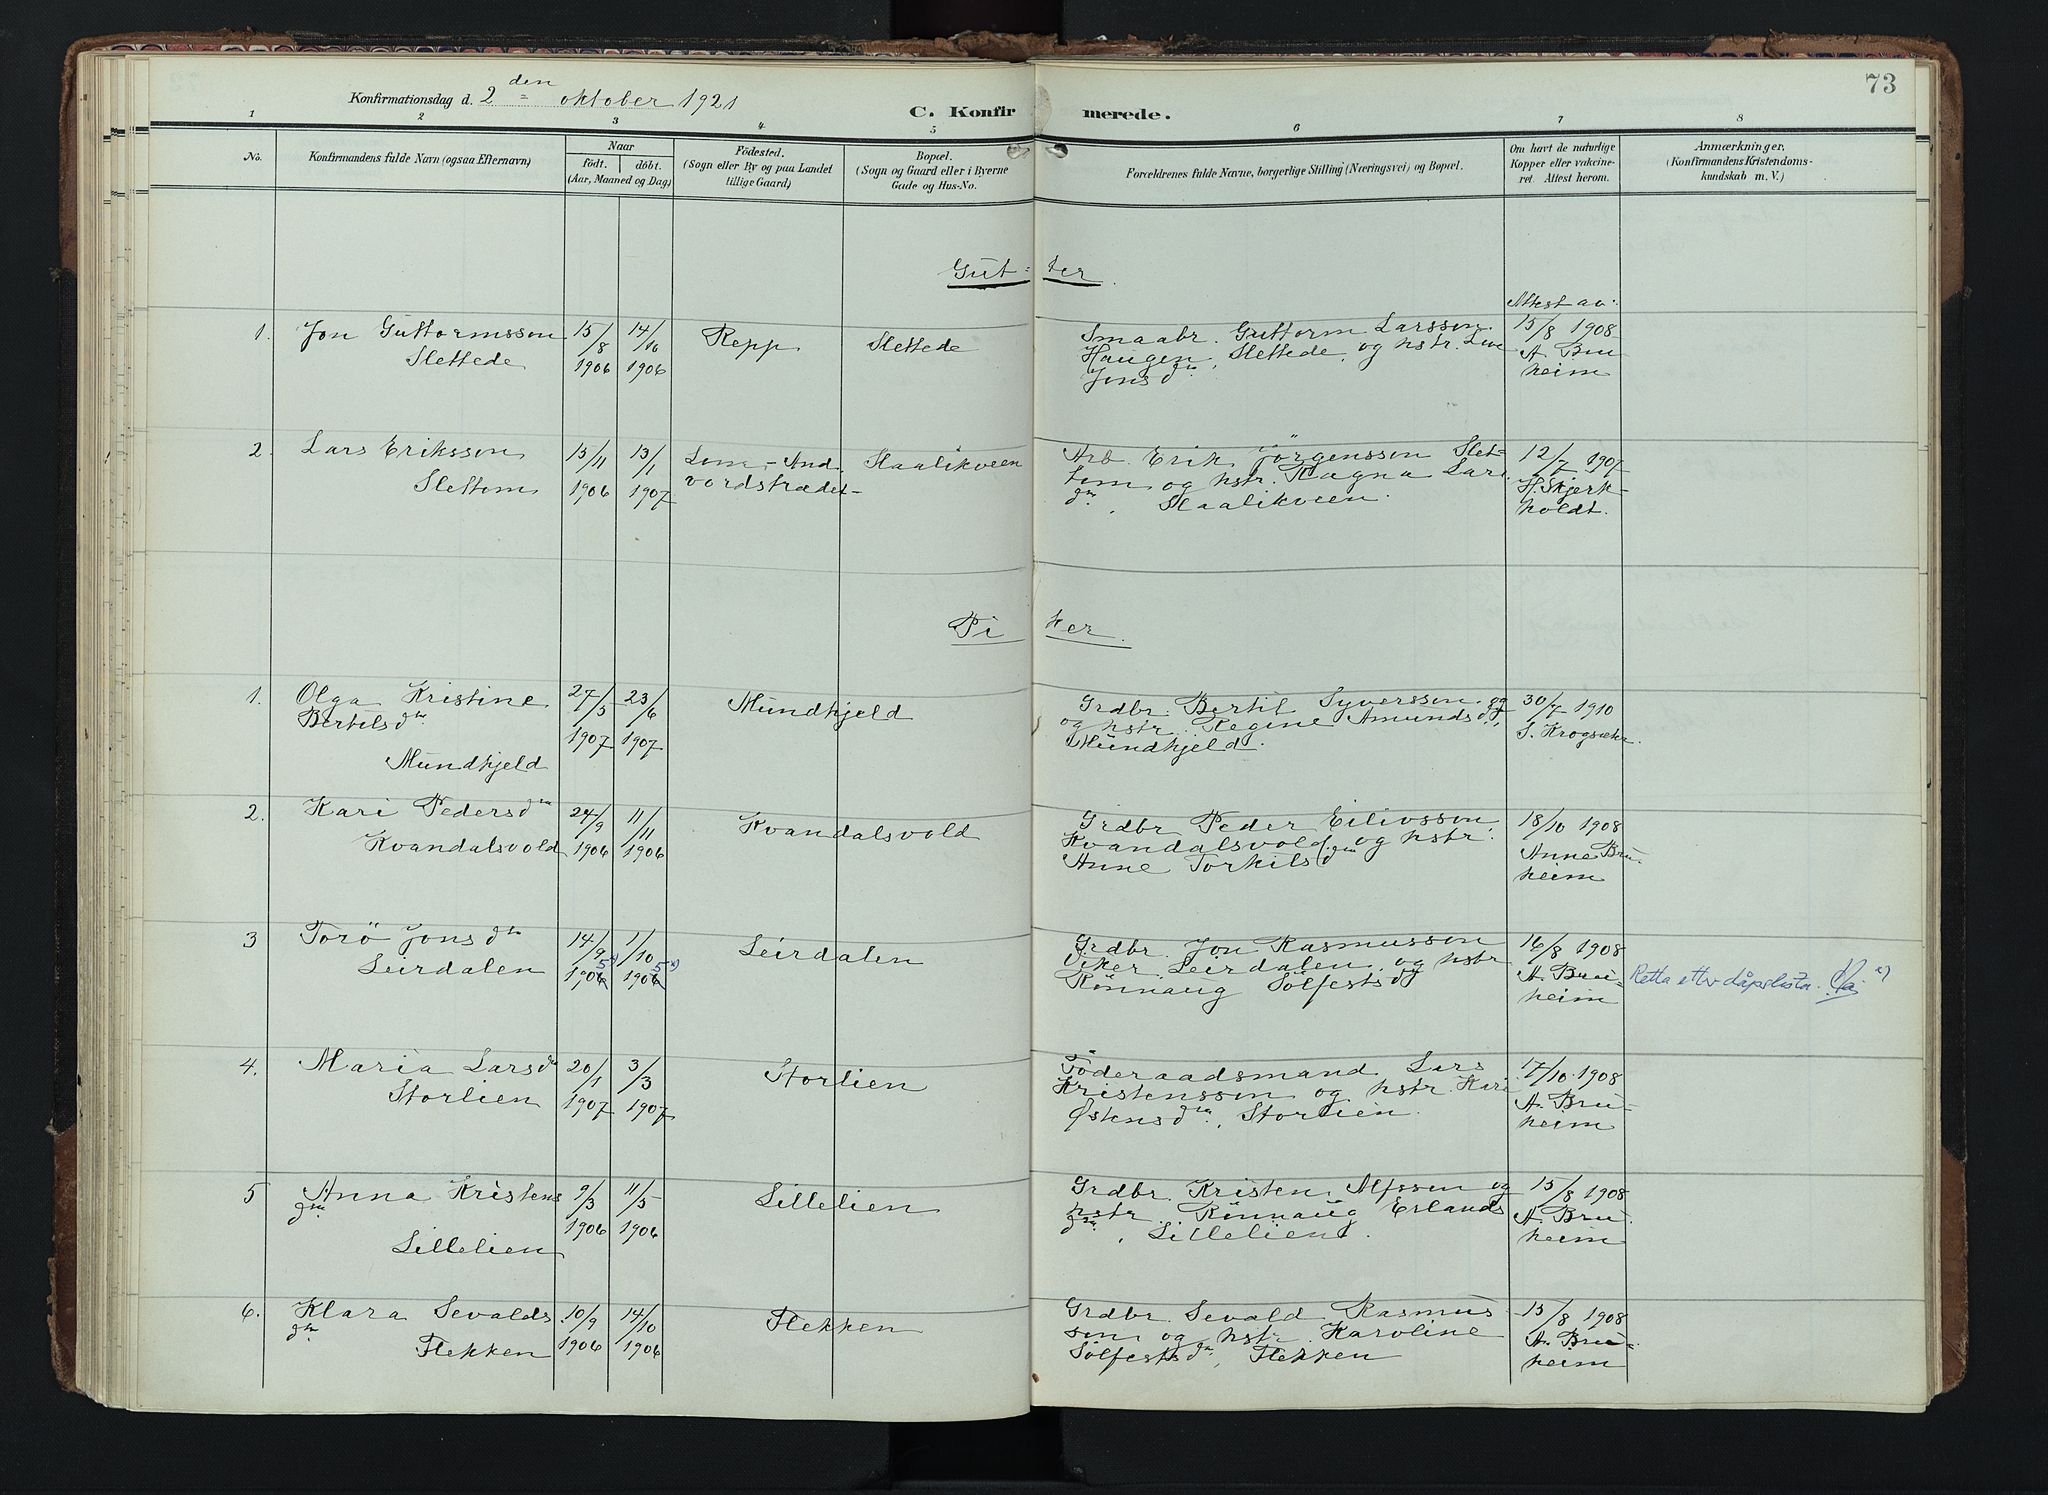 73
Konfirmationsdag d. 2den oktober 1921
C. Konfirmerede.
1 2 3 4 5 6 7 8
No.
Konfirmandens fulde Navn (ogsaa Efternavn)
Naar
født. døbt.
(Aar, Maaned og Dag)
Fødested.
(Sogn eller By og paa Landet
tillige Gaard)
Bopæl.
(Sogn og Gaard eller i Byerne
Gade og Hus-No.
Forældrenes fulde Navne, borgerlige Stilling (Næringsvei) og Bopæl.
Om havt de naturlige
Kopper eller vakcine-
ret. Attest herom.
Anmærkninger.
(Konfirmandens Kristendoms-
kundskab m. V.)
Gut-ter
1. Jon Guttormsson
Slettede
15/8
1906
14/10
1906
Repp
Slettede
Smaabr. Guttorm Larsson
Haugen, Slettede, og hstr. Live
Jonsdtr
Attest av.
15/8 1908
A. Bru-
heim
2. Lars Eriksson
Slettom
15/11
1906
13/1
1907
Lom, And-
vordstrædet
Staalikveen
Arb. Erik Jörgensson Slet-
tom og hstr. Ragna Lars
dtr, Staalikveen.
12/7 1907
H. Skjerk-
holdt.
Piker
1. Olga Kristine
Bertilsdtr
Mundhjeld
27/5
1907
23/6
1907
Mundhjeld
Grdbr. Bertil Syversson og
og hstr. Regine Amundsd,
Mundhjeld.
30/7 1910
S. Krogsæhr.
2. Kari Pedersdtr
Kvandalsvold
24/9
1906
11/11
1906
Kvandalsvold
Grdbr Peder Eilivsson,
Kvandalsvold og hstr.
Anne Torkilsdtr
18/10 1908
Anne Bru-
heim
3 Torö Jonsdtr
Leirdalen
14/9
1906 5x)
1/10
1906 5x)
Leirdalen
Grdbr. Jon Rasmusson
Viker, Leirdalen, og hstr
Rönnaug Sölfestsd
16/8 1908
A. Bru-
heim
Retta etter dåpslista. x)
4. Maria Larsdtr
Storlien
20/1
1907
3/3
1907
Storlien
Föderaadsmand Lars
Kristensson og hstr. Kari
Østensdtr, Storlien.
17/10 1908
A. Bru-
heim
5 Anna Kristens
dtr.
Lillelien
9/3
1906
11/5
1906
Lillelien
Grdbr. Kristen Alfsson og
hstr. Rönnaug Erlands
dtr, Lillelien.
15/8 1908
A. Bru-
heim
6. Klara Sevalds
dtr
Flekken
10/9
1906
14/10
1906
Flekken
Grdbr. Sevald Rasmus
son og hstr. Karoline
Sölfestsdtr, Flekken
15/8 1908
A. Bru-
heim